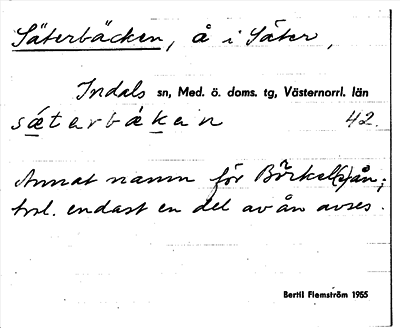 Säterbäcken, å i Säter,
Indals sn, Med. ö. doms. tg, Västernorrl. län
sæterbäkein 42.
Annat namn för Börkel(s)ån;
trol. endast en del av ån avses.
Bertil Flemström 1955